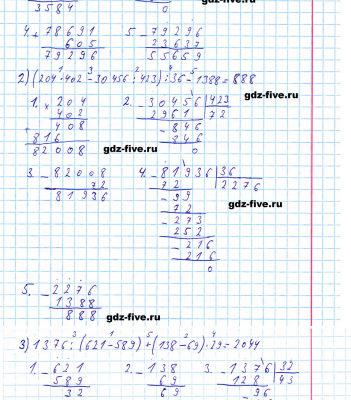 3584 0
4. + 78691 5 - 79296
605 23637
79296 55659
2) (204·402 - 30456:423):36 - 1388 = 888
1. × 204 2. - 30456 | 423
402 2961 72
+ 408 - 846
816 846
82008 0
gdz-five.ru
gdz-five.ru
3. - 82008 4. - 81936 | 36
72 72 2276
81936 - 99
72
- 273
252
- 216
216
0
gdz-five.ru
5. - 2276
1388
888
gdz-five.ru
3) 1376:(621-589)+(138-69)·29=2044
1. - 621 2. - 138 3. - 1376 | 32
589 69 128 43
32 69 - 96